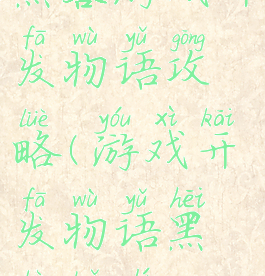 fā wù yǔ gōng
发物语攻
lüè yóu xì kāi
略(游戏开
fā wù yǔ hēi
发物语黑